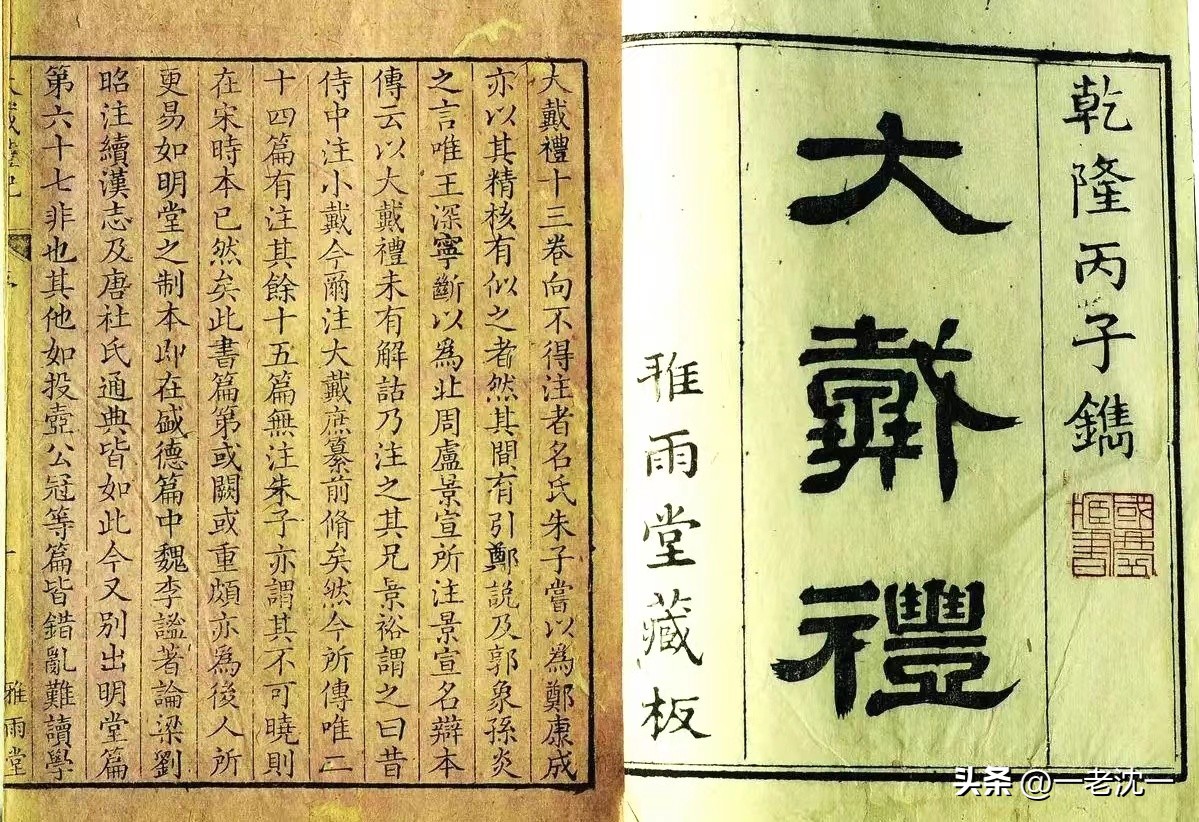 乾隆丙子鐫
大戴禮
雅雨堂藏板
大戴禮十三卷向不得注者名氏朱子嘗以為鄭康成
亦以其精核有似之者然其間有引鄭說及郭象孫炎
之言唯王深寧斷以為北周盧景宣所注景宣名辯本
傳云以大戴禮未有解詁乃注之其兄景裕謂之曰昔
侍中注小戴今爾注大戴庶纂前脩矣然今所傳唯二
十四篇有注其餘十五篇無注朱子亦謂其不可曉則
在宋時本已然矣此書篇第或闕或重頗亦為後人所
更易如明堂之制本即在盛德篇中魏李謐著論梁劉
昭注續漢志及唐杜氏通典皆如此今又別出明堂篇
第六十七非也其他如投壺公冠等篇皆錯亂難讀學
大戴禮記
一
雅雨堂
头条 @一老沈一